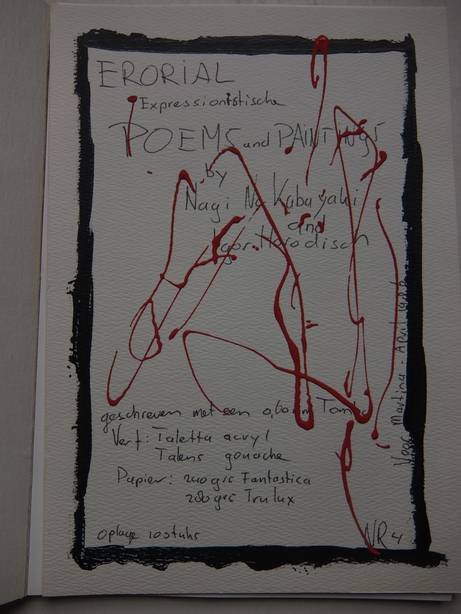 ERORIAL
Expressionistische
POEMS and PAINTINGS
by
Nagi No Kabayaki
and
Igor Horodisch
geschreven met een
Verf: Taletta acryl
Talens gouache
Papier: 200 grs Fantastica
280 grs Trulux
Oplage 10 stuks
NR 4
Voor Martina - April